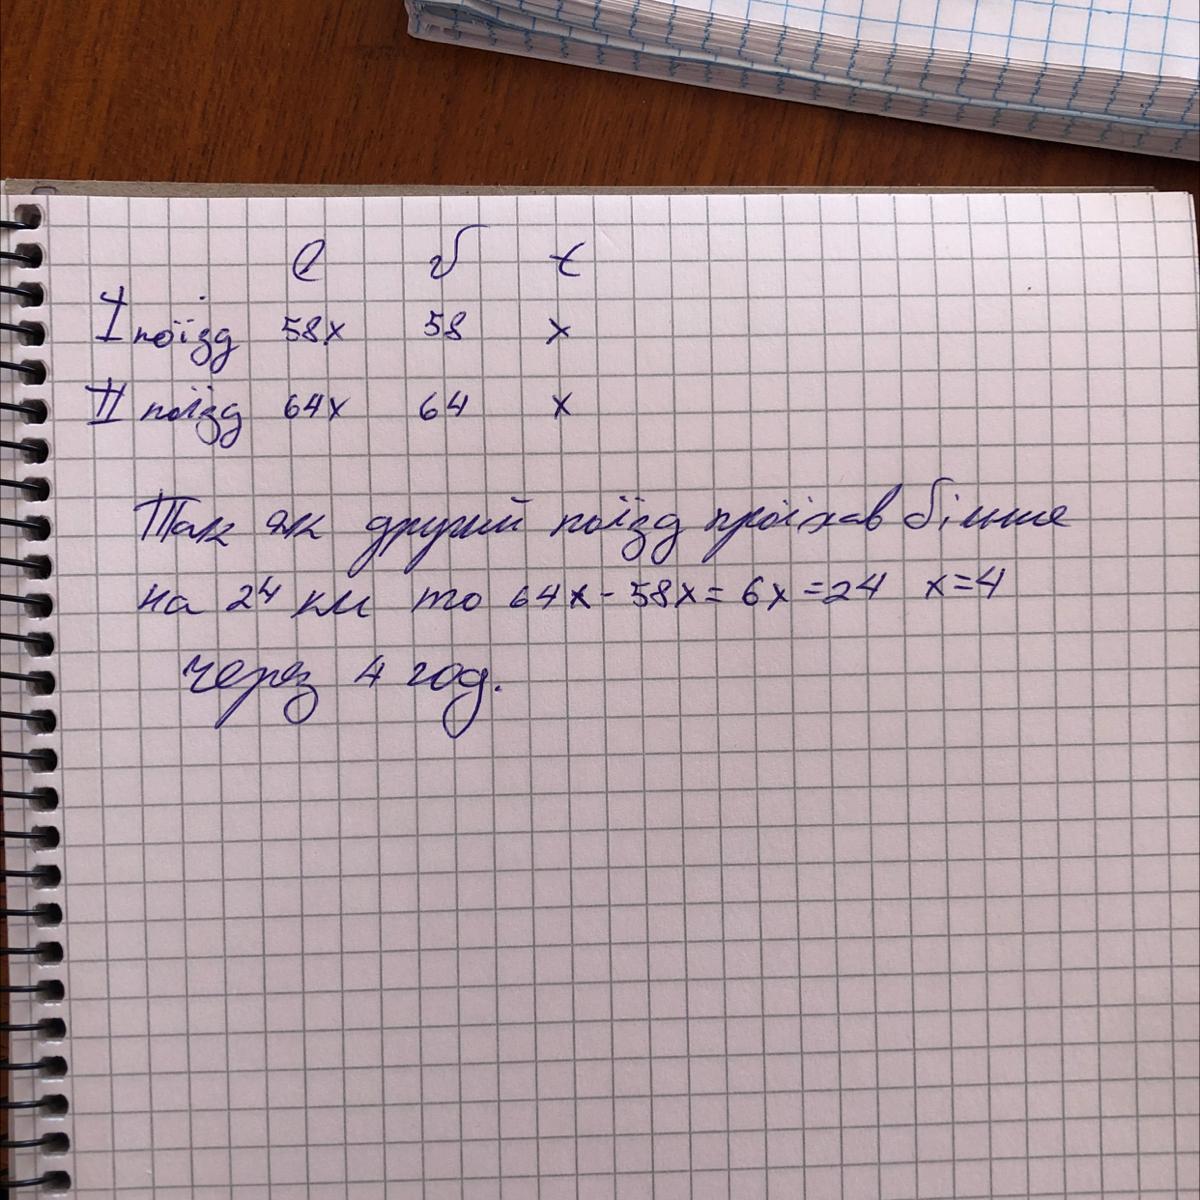 l v t
I поїзд 58x 58 x
II поїзд 64x 64 x
Так як другий поїзд проїхав більше
на 24 км то 64x - 58x = 6x = 24 x=4
через 4 год.